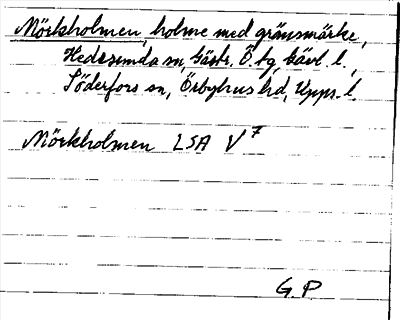 Mörkholmen, holme med gränsmärke,
Hedesunda sn, Gästr. Ö. tg, Gävl. l.,
Söderfors sn, Örbyhus hd, Upps. l.
Mörkholmen LSA V7
G. P